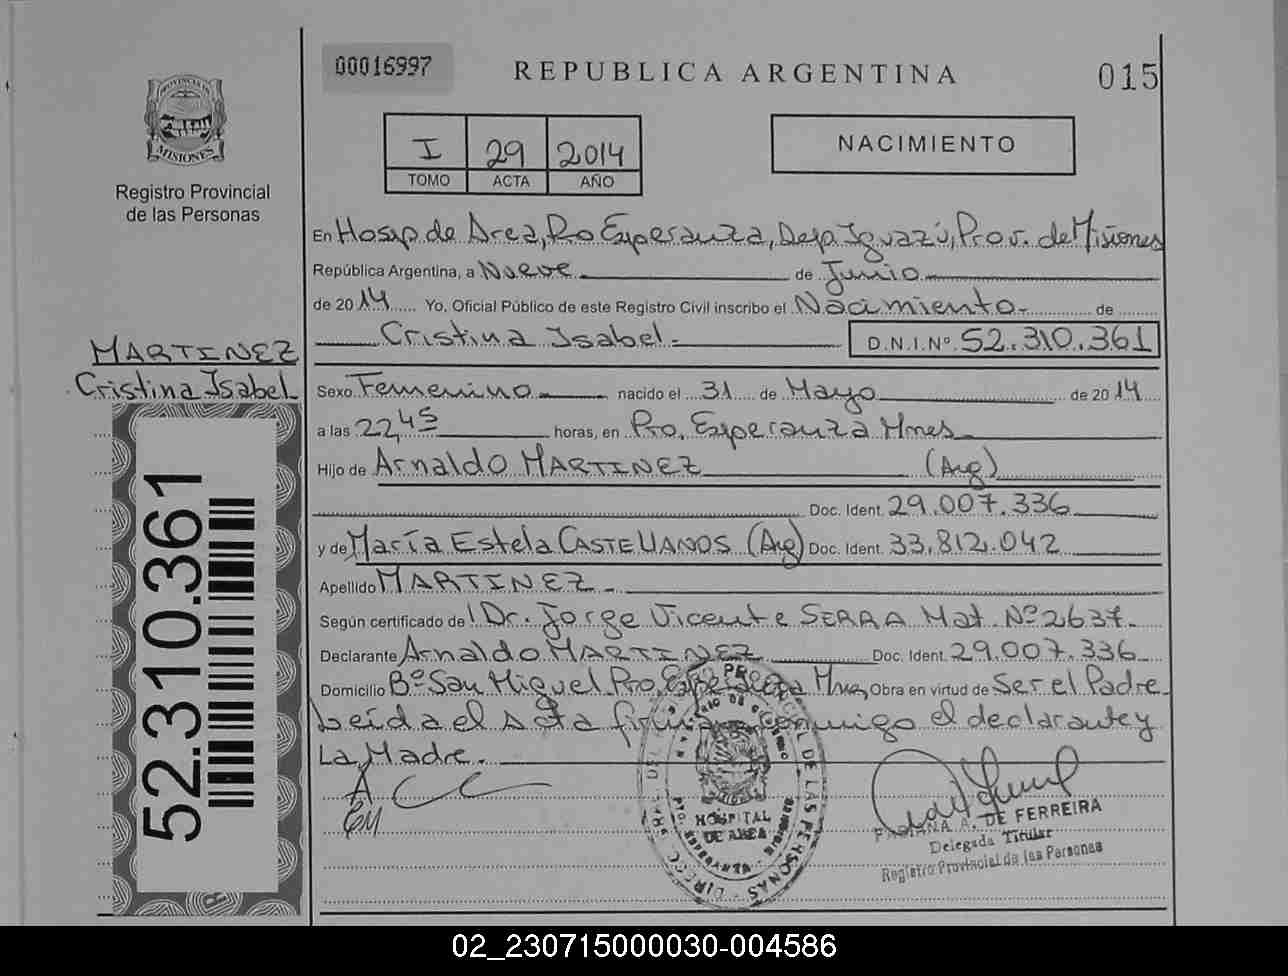 00016997
REPUBLICA ARGENTINA
015
PROVINCIA DE
MISIONES
Registro Provincial
de las Personas
I 29 2014
TOMO ACTA AÑO
NACIMIENTO
En Hosp. de Area, Pto Esperanza, Dep. Iguazú, Prov. de Misiones
República Argentina, a Nueve de Junio
de 2014 Yo, Oficial Público de este Registro Civil inscribo el Nacimiento.- de
Cristina Isabel.- D.N.I.Nº 52.310.361
MARTINEZ
Cristina Isabel
52.310.361
Sexo Femenino nacido el 31 de Mayo de 2014
a las 22,45 horas, en Pto. Esperanza Mnes
Hijo de Arnaldo MARTINEZ (Arg)
Doc. Ident. 29.007.336
y de María Estela CASTELLANOS (Arg) Doc. Ident. 33.812.042
Apellido MARTINEZ.-
Según certificado de Dr. Jorge Vicente SERRA Mat. Nº 2637.-
Declarante Arnaldo MARTINEZ Doc. Ident. 29.007.336
Domicilio Bº San Miguel Pto. Esperanza Mnes, Obra en virtud de Ser el Padre
Leída el Acta firma conmigo el declarante y
La Madre.-
HOSPITAL
DE AREA
FABIANA A. DE FERREIRA
Delegada Titular
Registro Provincial de las Personas
02_230715000030-004586